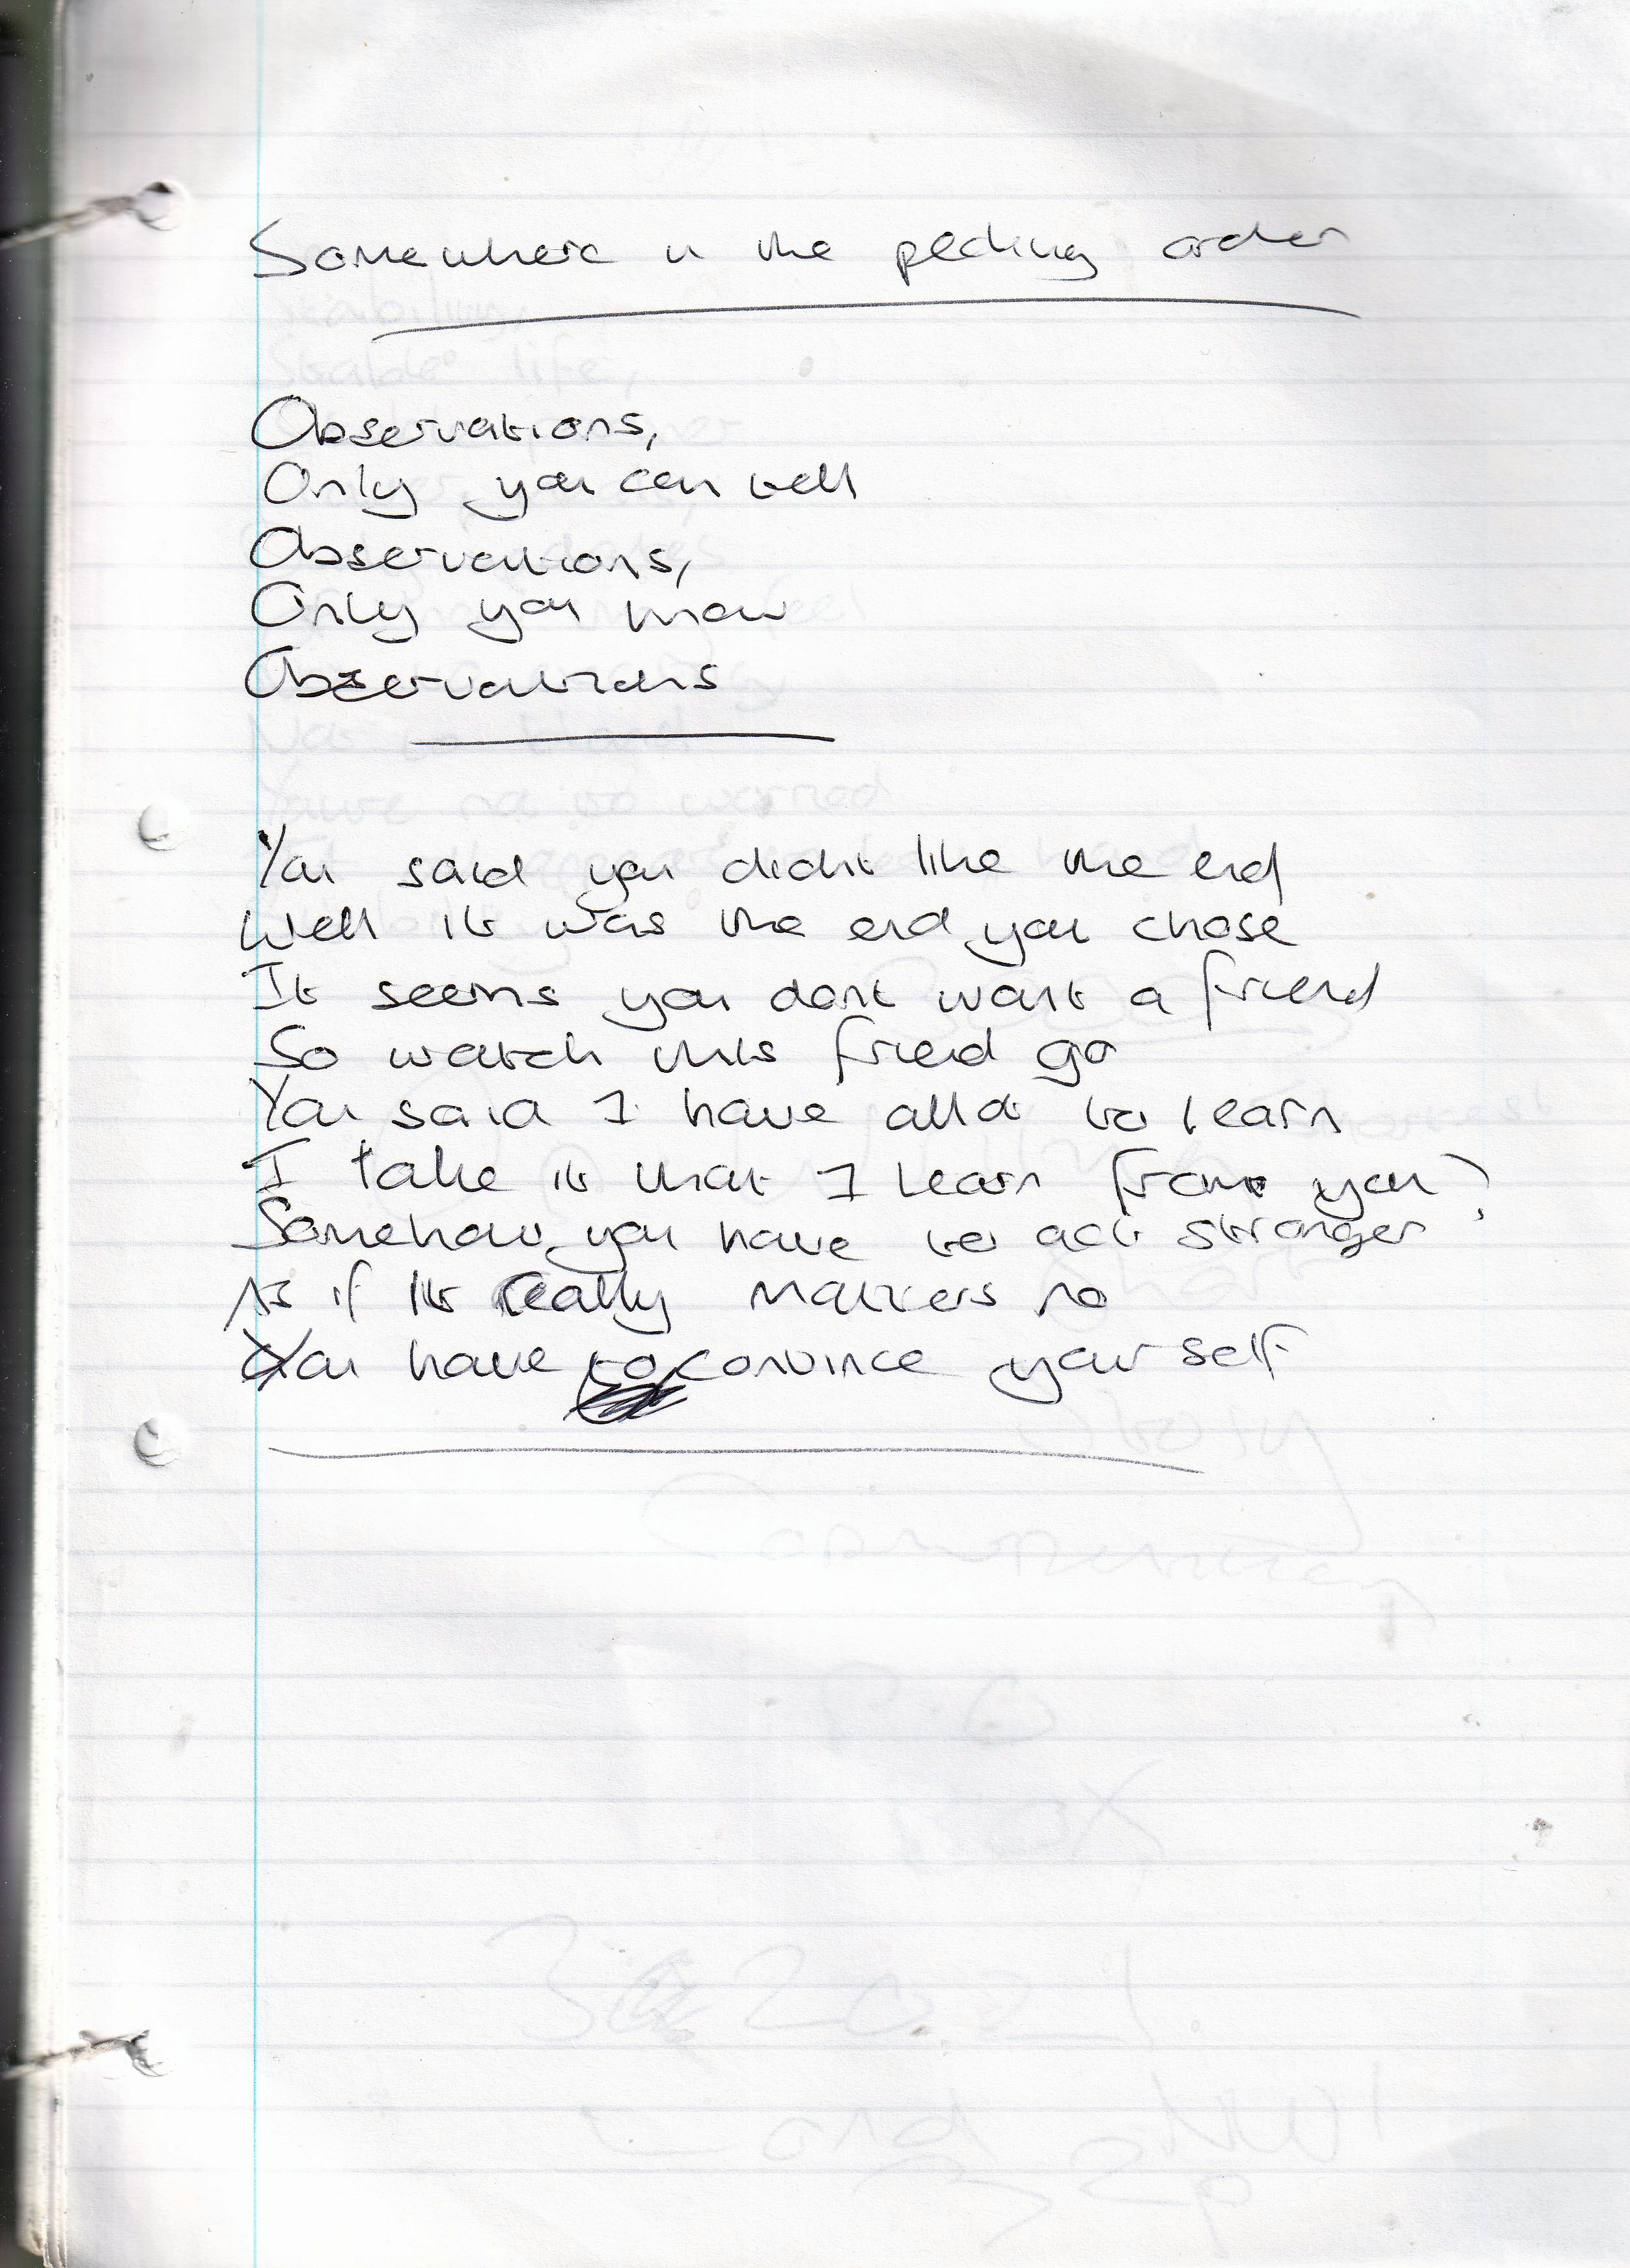 Somewhere in the pecking order
Observations,
Only you can tell
Observations,
Only you know
Observations
You said you didnt like the end
Well it was the end you chose
It seems you dont want a friend
So watch this friend go
You said I have alot to learn
I take it that I learn from you?
Somehow you have to act stronger
As if it really matters so
You have to convince yourself